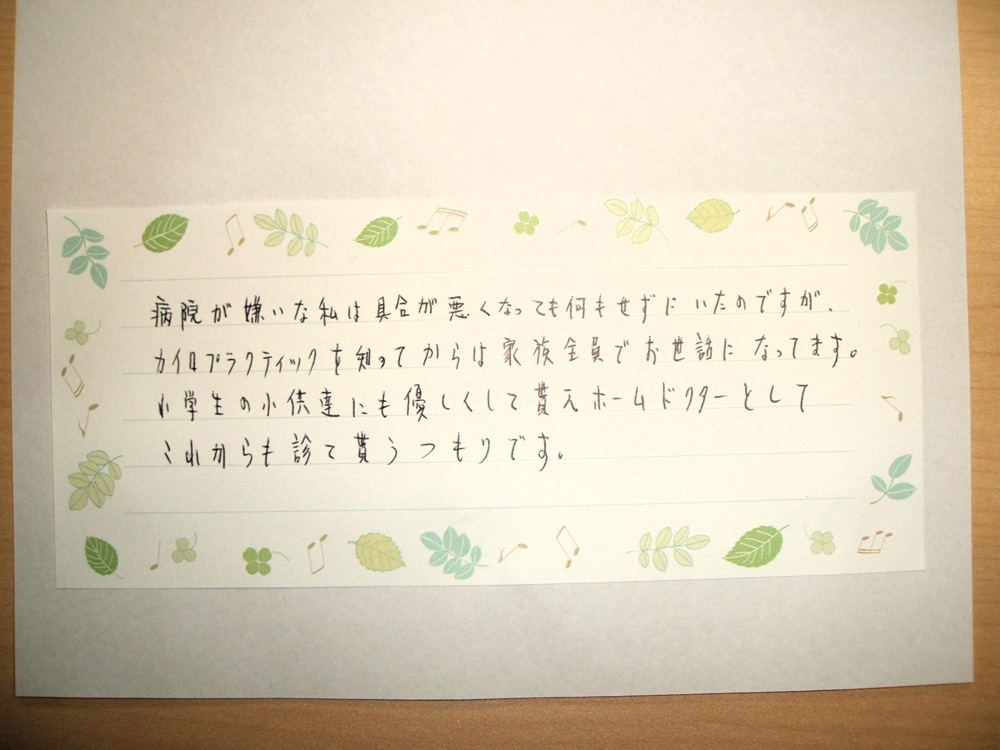 病院が嫌いな私は具合が悪くなっても何もせずにいたのですが、
カイロプラクティックを知ってからは家族全員でお世話になってます。
小学生の小供達にも優しくして貰えホームドクターとして
これからも診て貰うつもりです。